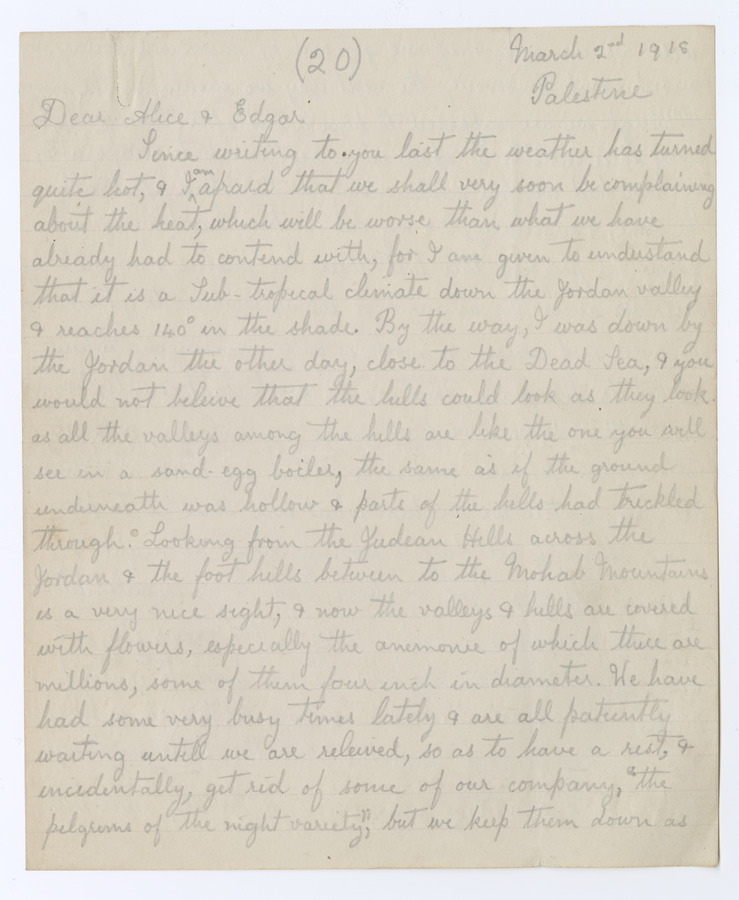 (20)
March 2nd 1918
Palestine
Dear Alice & Edgar
Since writing to you last the weather has turned
quite hot, & I am afraid that we shall very soon be complaining
about the heat, which will be worse than what we have
already had to contend with, for I am given to understand
that it is a Sub-tropical climate down the Jordan valley
& reaches 140° in the shade. By the way, I was down by
the Jordan the other day, close to the Dead Sea, & you
would not beleive that the hills could look as they look.
as all the valleys among the hills are like the one you will
see in a sand-egg boiler, the same as if the ground
underneath was hollow & parts of the hills had trickled
through. Looking from the Judean Hills across the
Jordan & the foot hills between to the Mohab Mountains
is a very nice sight, & now the valleys & hills are covered
with flowers, especially the anemonie of which there are
millions, some of them four inch in diameter. We have
had some very busy times lately & are all patiently
waiting untill we are releived, so as to have a rest, &
incidentally, get rid of some of our company, "the
pilgrims of the night variety", but we keep them down as